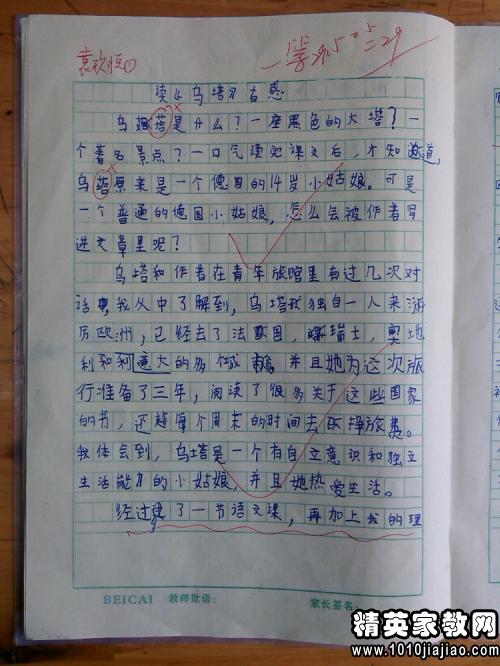 袁欣恒①
一等 29.5 - 0.5 = 29
读《乌塔》有感
乌塔是什么？一座黑色的大塔？一
个著名景点？一口气读完课文后，才知道，
乌塔原来是一个德国的14岁小姑娘。可是
一个普通的德国小姑娘，怎么会被作者写
进文章里呢？
乌塔和作者在青年旅馆里有过几次对
话，我从中了解到，乌塔独自一人来游
历欧洲，已经去了法国，瑞士，奥地
利和意大利的多个城市，并且她为这次旅
行准备了三年，阅读了很多关于这些国家
的书，还趁每个周末的时间去挣旅费。
我体会到，乌塔是一个有自立意识和独立
生活能力的小姑娘，并且她热爱生活。
经过了一节语文课，再加上我的理
BEICAI 教师批语： 家长签名：
精英家教网
www.1010jiajiao.com